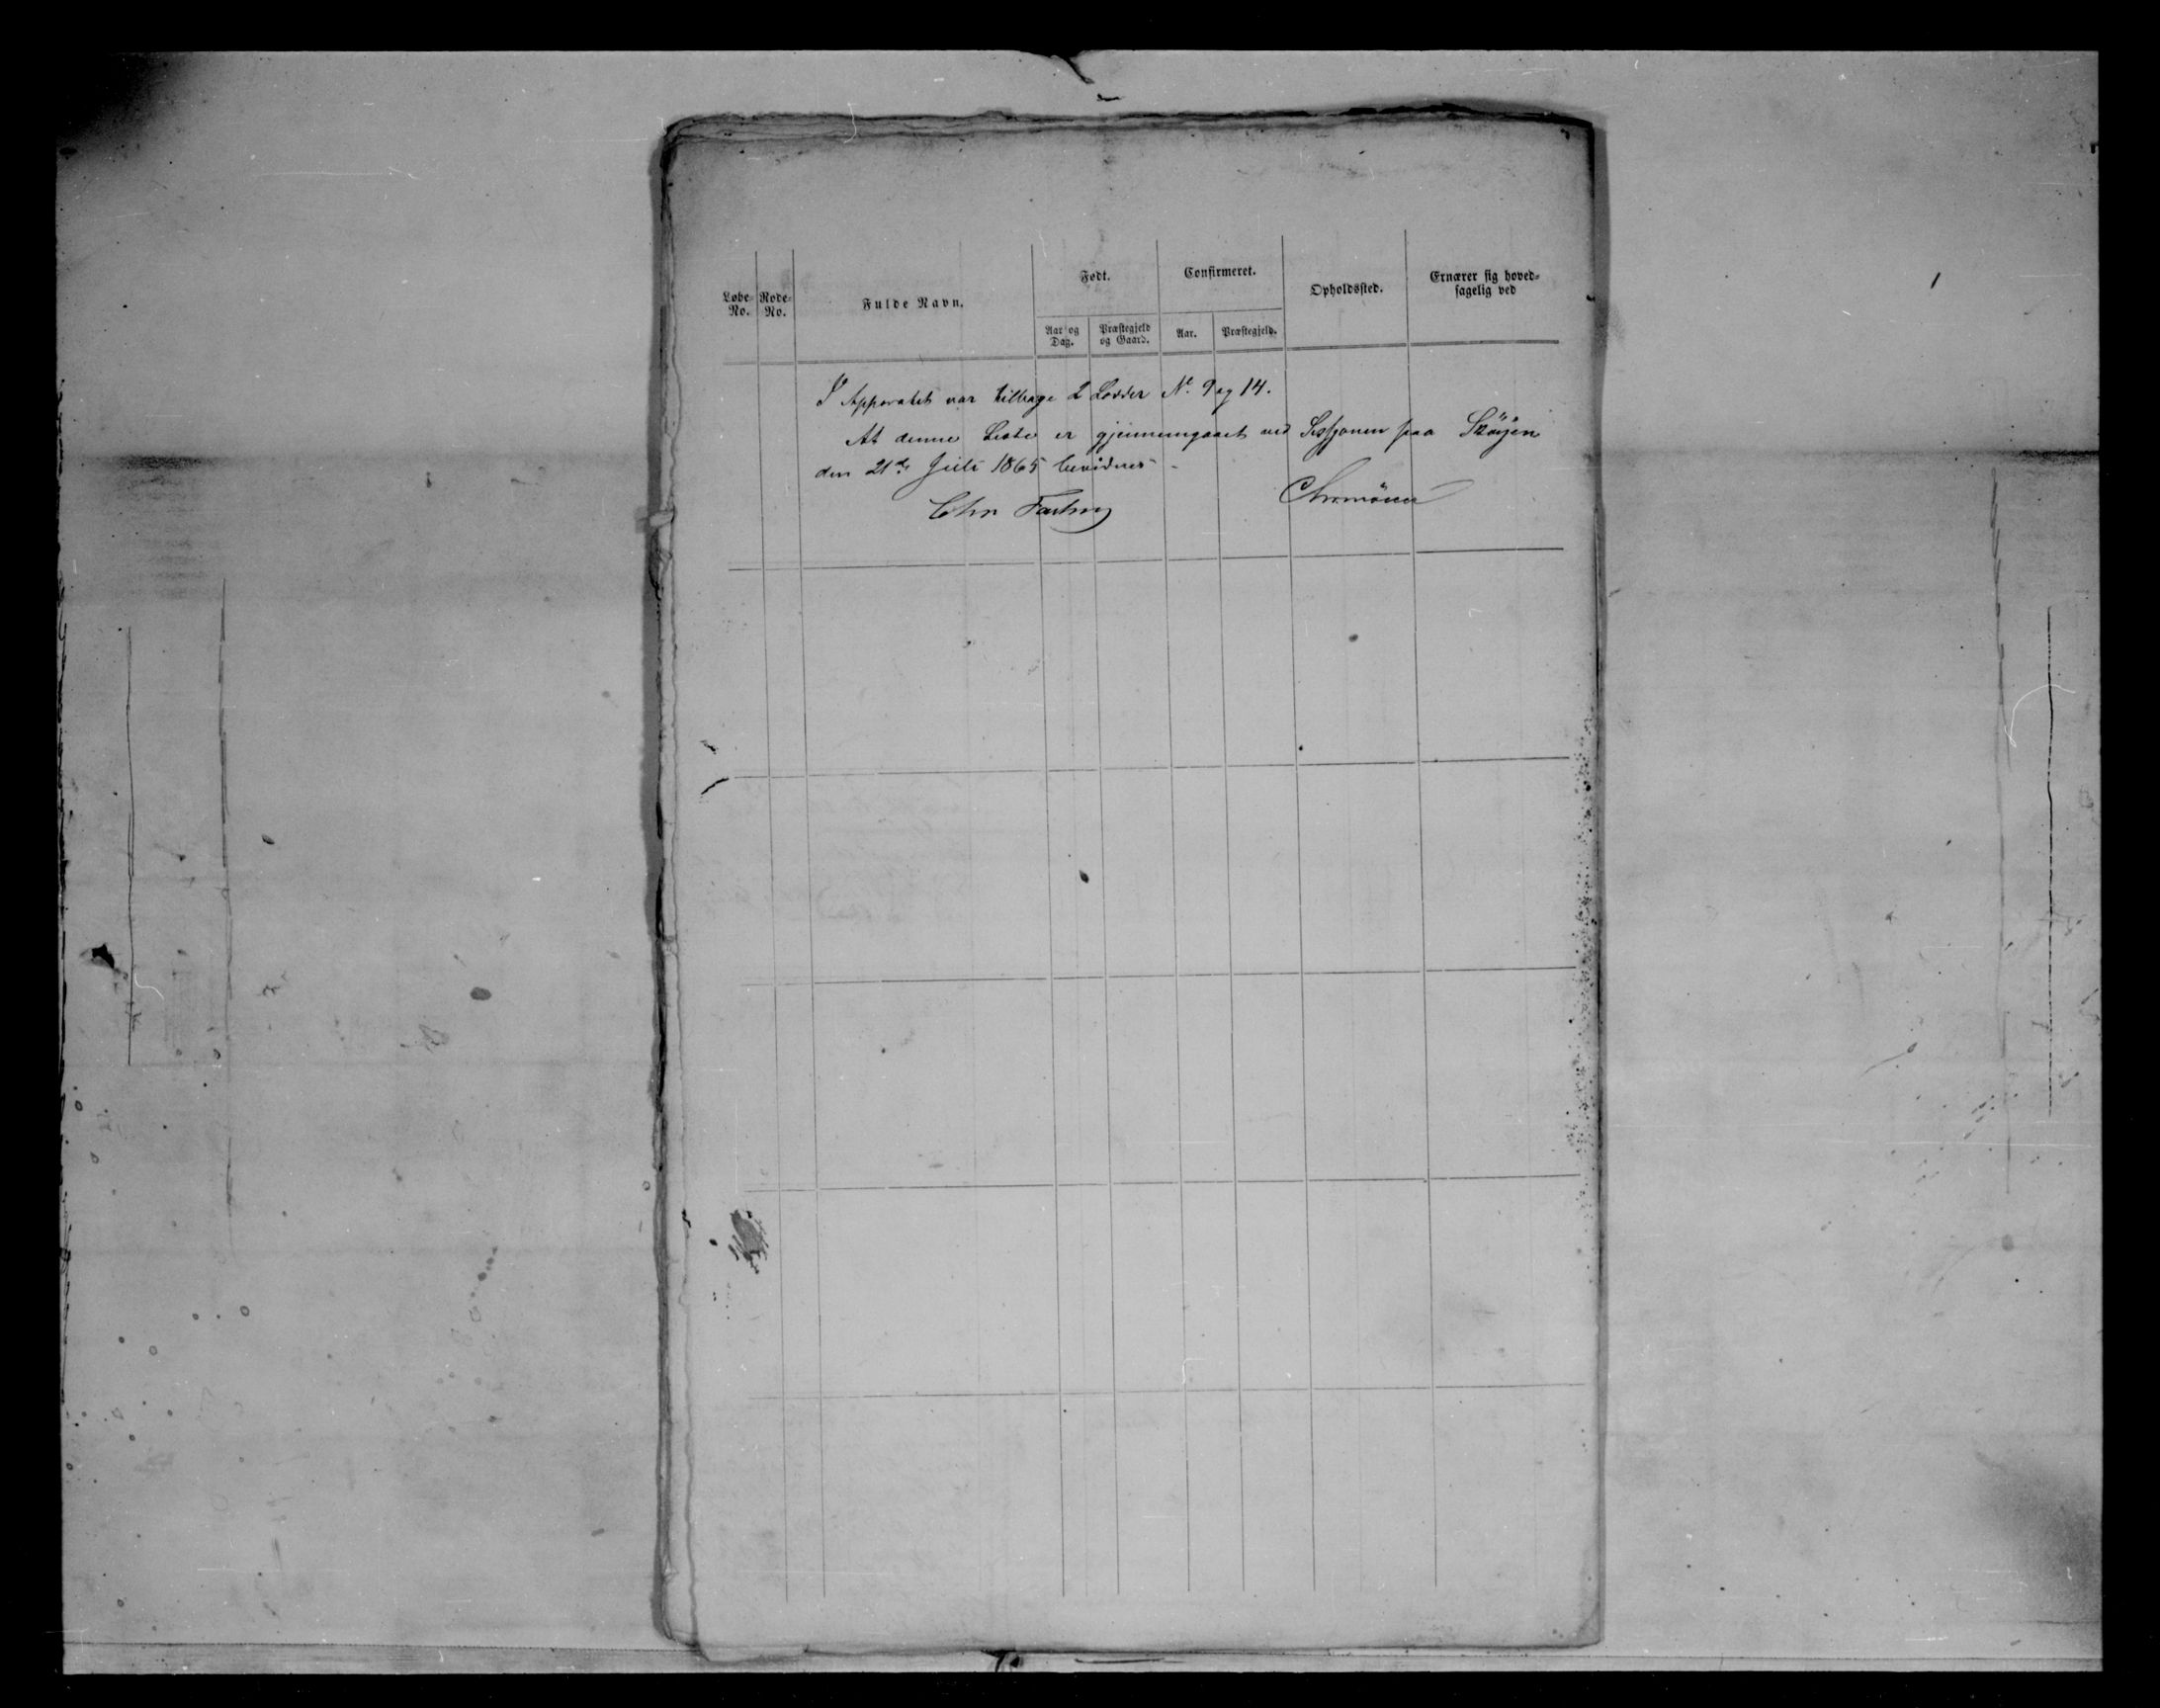 Løbe-
No.
Rode-
No.
Fulde Navn.
Født.
Aar og
Dag.
Præstegjeld
og Gaard.
Confirmeret.
Aar.
Præstegjeld.
Opholdssted.
Ernærer sig hoved-
sagelig ved
I Apparatet var tilbage 2 Lodder No. 9 og 14.
At denne Liste er gjennemgaaet ved Sessionen paa
den 21de Juli 1865 bevidnes.
Chr